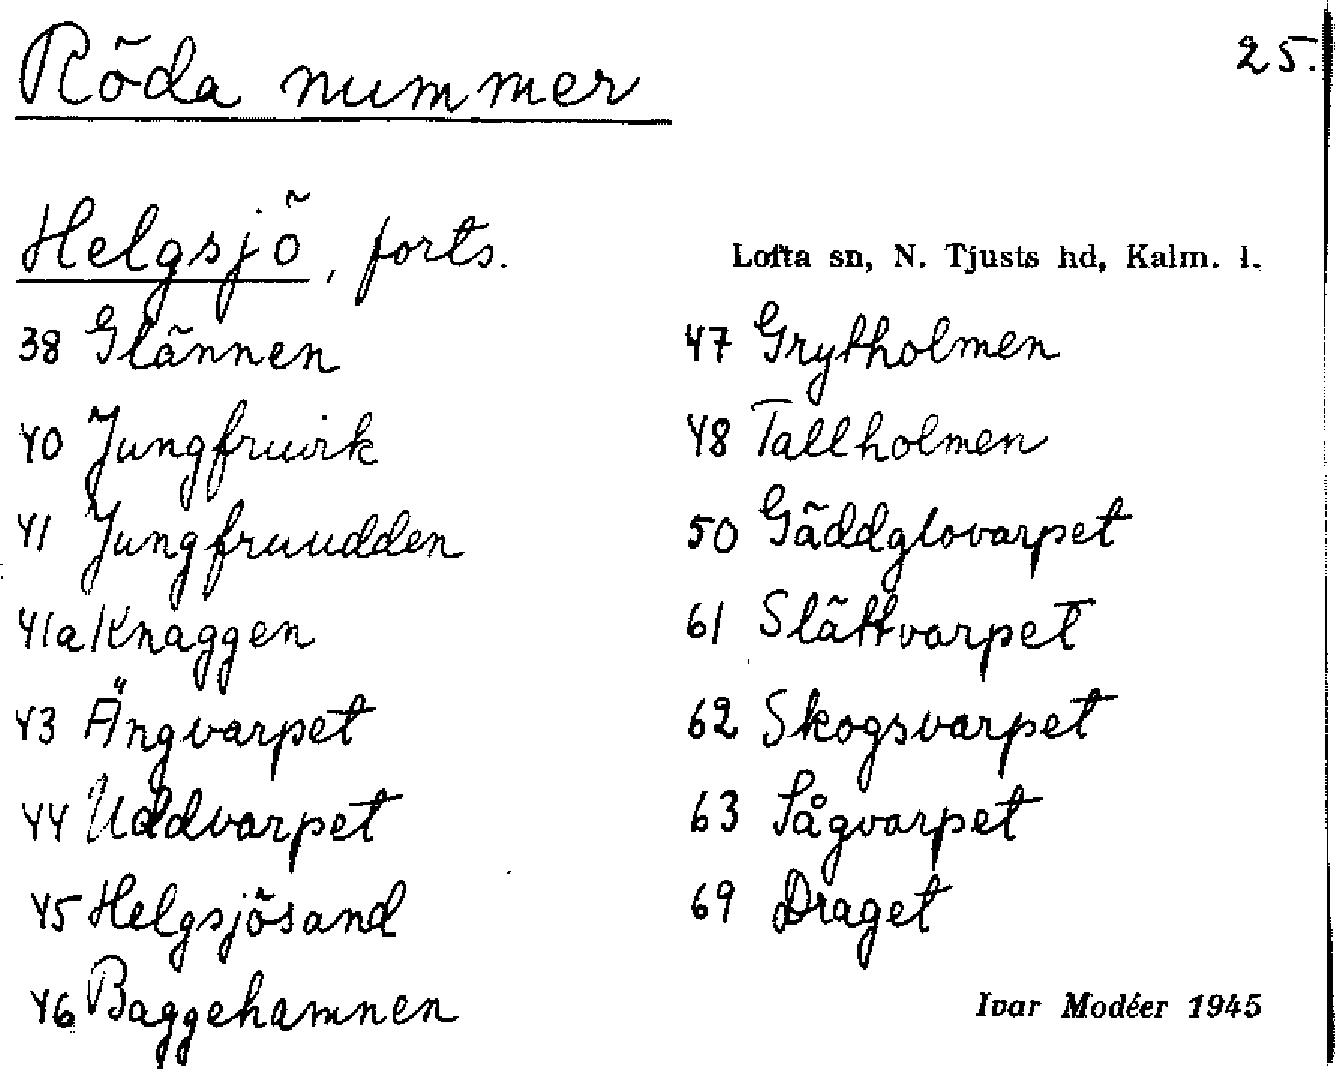 Röda nummer
25.
Helgsjö, forts.
Lofta sn, N. Tjusts hd, Kalm. l.
38 Glännen
40 Jungfruvik
41 Jungfruudden
41a Knaggen
43 Ängvarpet
44 Uddvarpet
45 Helgsjösand
46 Baggehamnen
47 Grytholmen
48 Tallholmen
50 Gäddglovarpet
61 Slättvarpet
62 Skogsvarpet
63 Sågvarpet
69 Draget
Ivar Modéer 1945